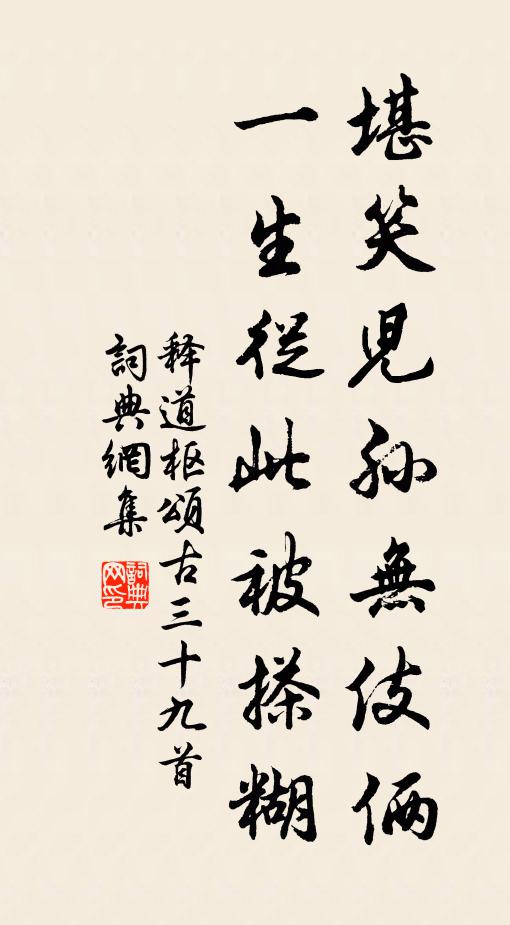 堪笑兒孫無伎倆
一生從此被搽糊
释道枢頌古三十九首
詞典網集
詞典网印